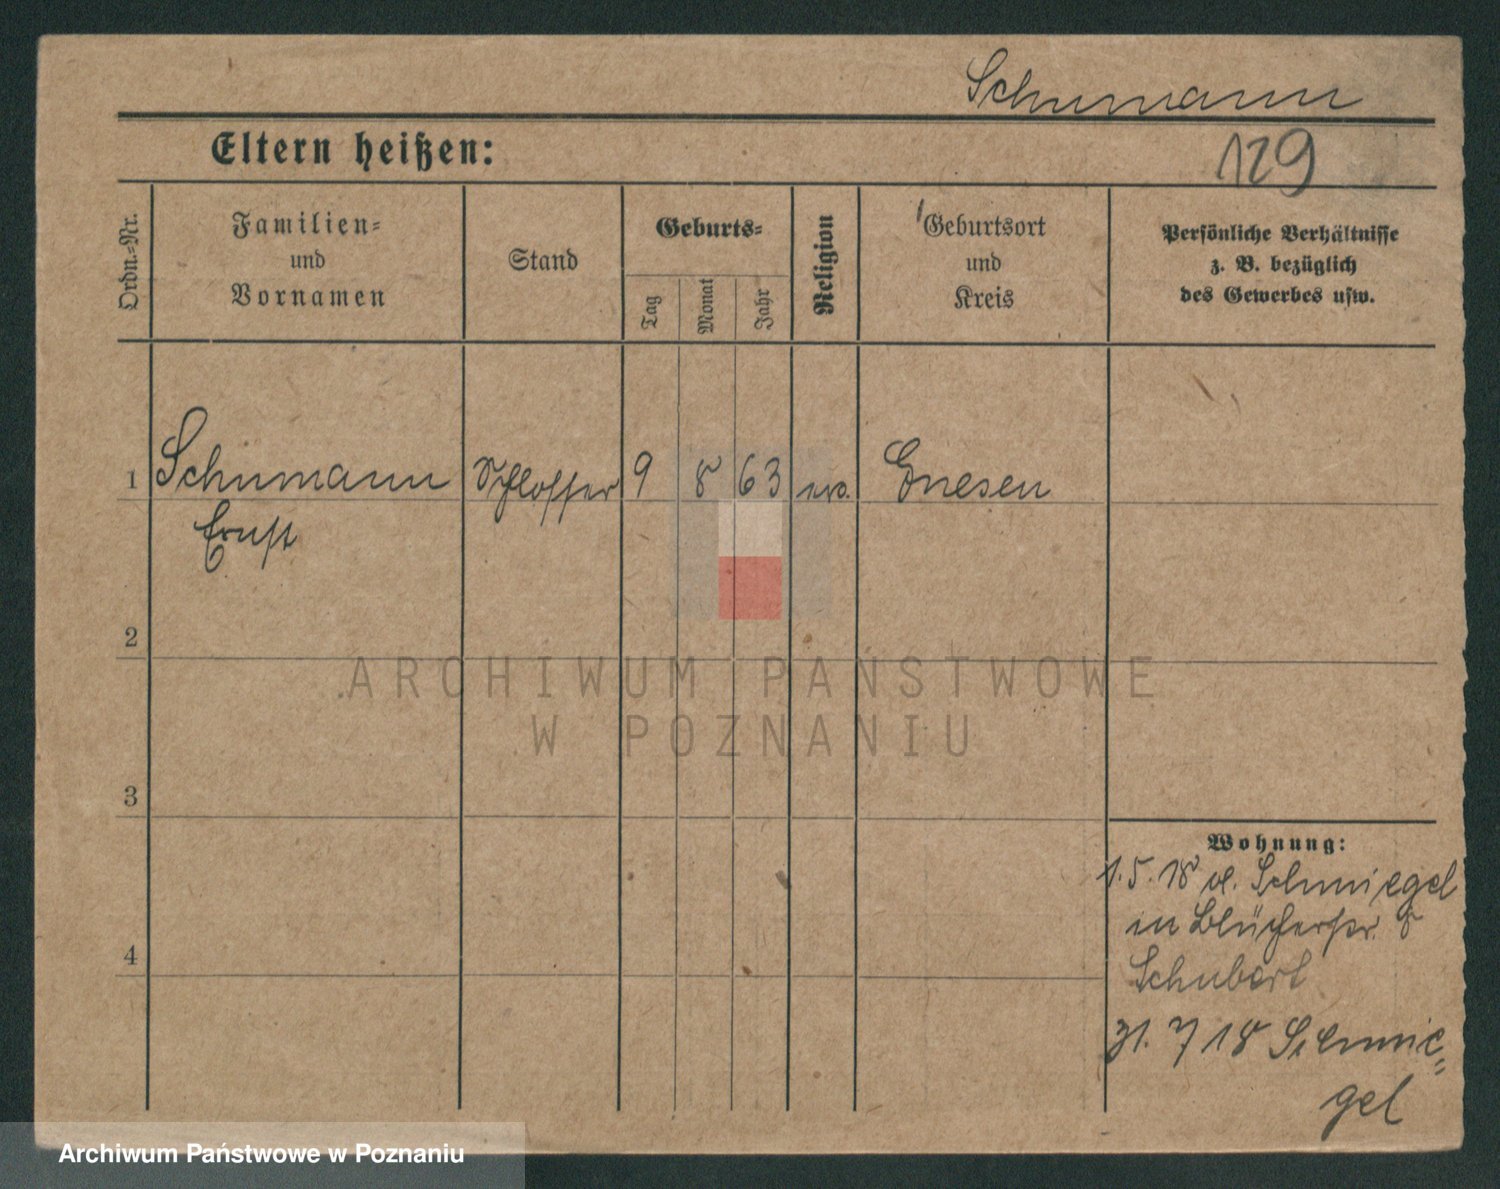 Schumann
Eltern heißen:
129
Ordn.-Nr.
Familien-
und
Vornamen
Stand
Geburts-
Tag
Monat
Jahr
Religion
Geburtsort
und
Kreis
Persönliche Verhältnisse
z. B. bezüglich
des Gewerbes usw.
1
Schumann
Schlosser
9
8
63
ev.
Gnesen
Ernst
2
ARCHIWUM PAŃSTWOWE
W POZNANIU
3
4
Wohnung:
1.5.18 v. Schmiegel
in Blücherstr. 8
Schubert
31. 7 18 Schmie-
gel
Archiwum Państwowe w Poznaniu